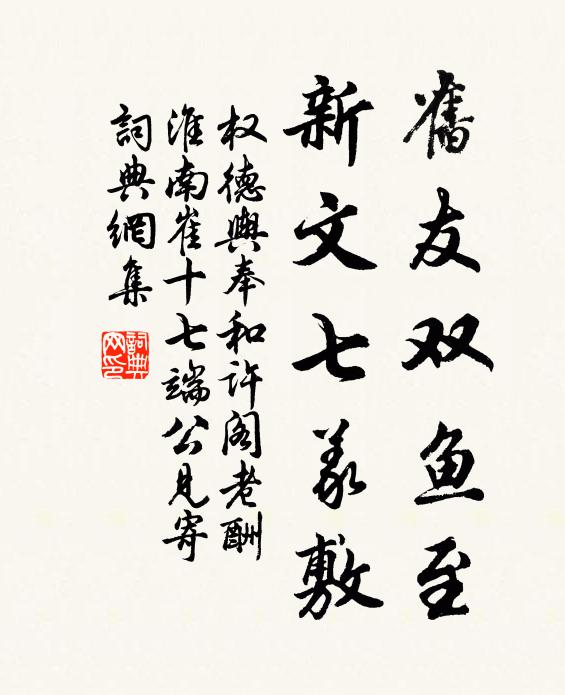 舊友双鱼至
新文七義敷
权德輿奉和許阁老酬
淮南崔十七端公見寄
詞典網集
詞典
网印